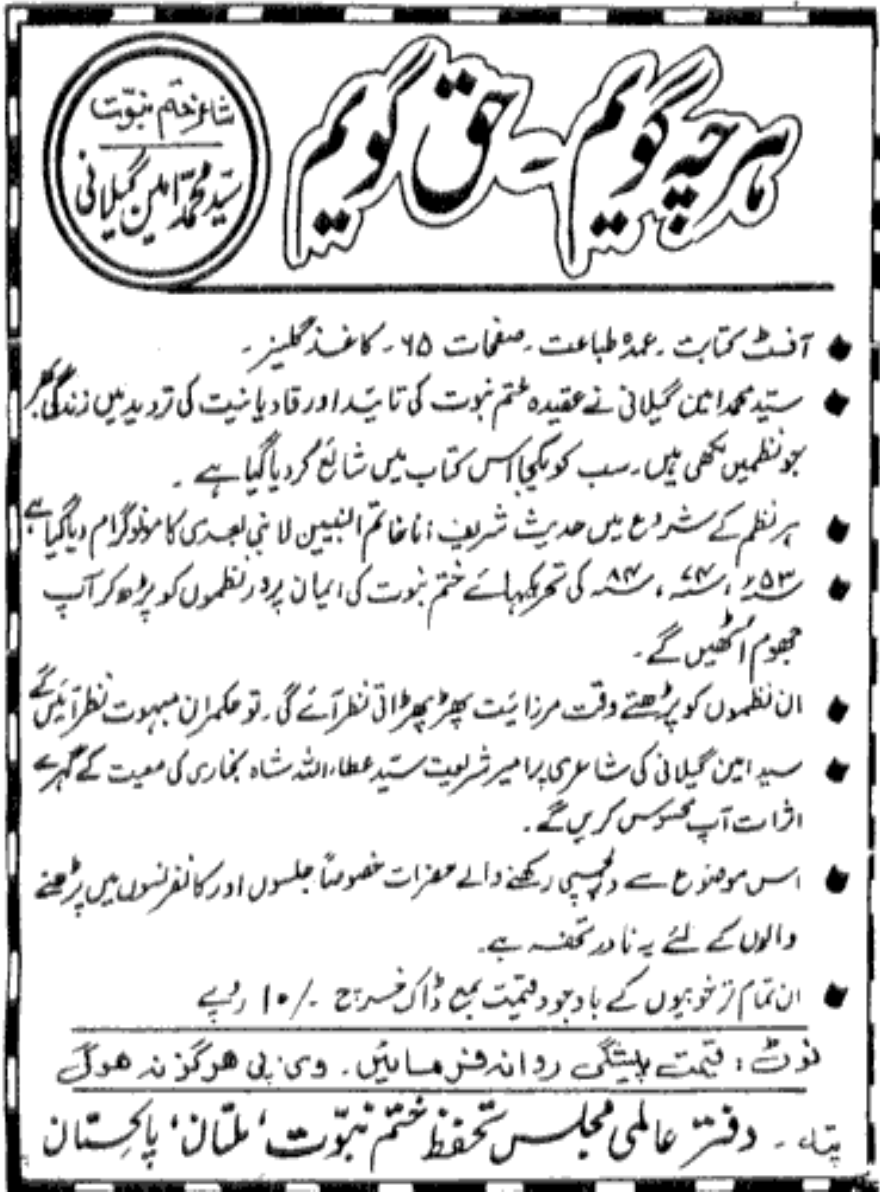 ہرچہ گویم - حق گویم
شاعر ختم نبوّت
سیّد محمد امین گیلانی
آفسٹ کتابت - عمدہ طباعت - صفحات ۶۵ - کاغذ گلیز -
سیّد محمد امین گیلانی نے عقیدہ ختم نبوت کی تائید اور قادیانیت کی تردید میں زندگی بھر
جو نظمیں لکھی ہیں - سب کو یکجا اس کتاب میں شائع کر دیا گیا ہے -
ہر نظم کے شروع میں حدیث شریف : انا خاتم النبیین لا نبی بعدی کا مونوگرام دیا گیا ہے
سنہ ۵۳ء ، سنہ ۷۴ ، سنہ ۸۴ کی تحریکہائے ختم نبوت کی ایمان پرور نظموں کو پڑھ کر آپ
جھوم اُٹھیں گے -
ان نظموں کو پڑھتے وقت مرزائیت پھڑپھڑاتی نظر آئے گی - تو حکمران مبہوت نظر آئیں گے
سید امین گیلانی کی شاعری پر امیر شریعت سیّد عطاء اللہ شاہ بخاری کی معیت کے گہرے
اثرات آپ محسوس کریں گے -
اس موضوع سے دلچسپی رکھنے والے حضرات خصوصاً جلسوں اور کانفرنسوں میں پڑھنے
والوں کے لئے یہ نادر تحفہ ہے -
ان تمام تر خوبیوں کے باوجود قیمت بمع ڈاک خرچ -/۱۰ روپے
نوٹ : قیمت پیشگی روانہ فرمائیں - وی پی ہرگز نہ ہوگی
پتہ - دفتر عالمی مجلس تحفظ ختم نبوّت ، ملتان ، پاکستان